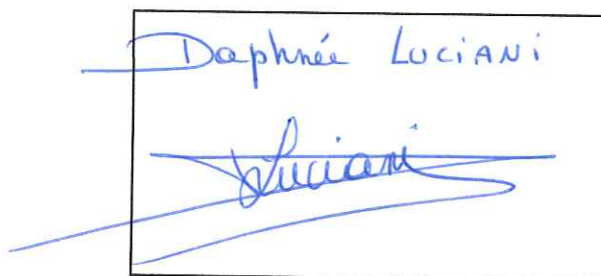 Daphnée LUCiANi
DLuciani